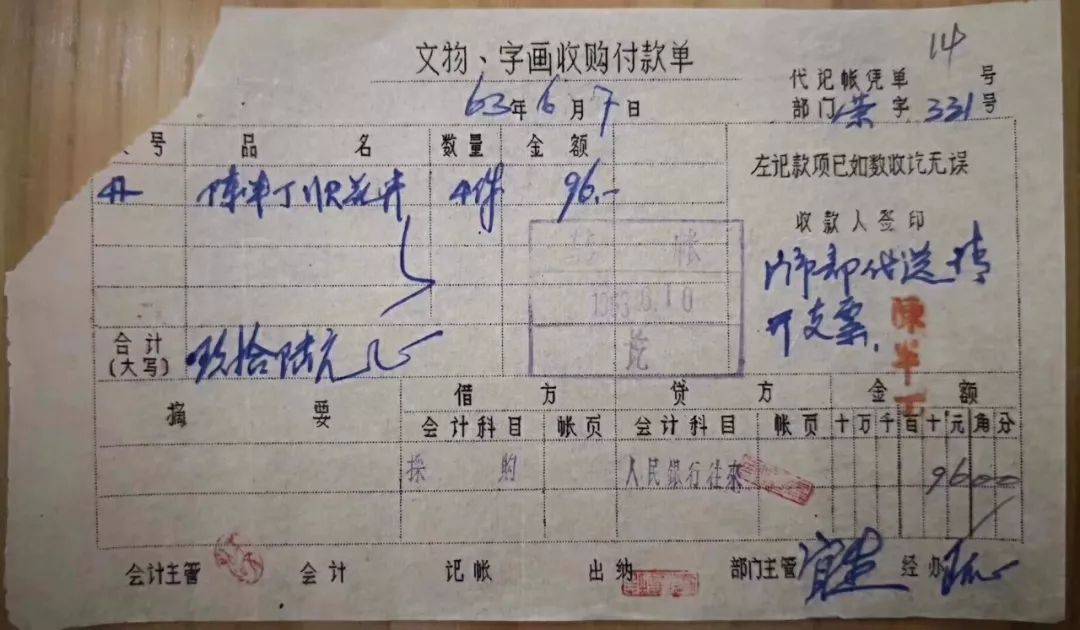 文物、字画收购付款单
14
代记帐凭单 号
63年6月7日
部门 荣 字 331号
号 品名 数量 金额
陈半丁 花卉 4件 96.-
左记款项已如数收讫无误
收款人签印
门市部代送请
开支票.
陳半丁
帐
1963.6.10
讫
合计
(大写) 玖拾陆元
摘要 借方 贷方 金额
会计科目 帐页 会计科目 帐页 十万千百十元角分
採购 人民银行往来 9600
会计主管 会计 记帐 出纳 部门主管 经办